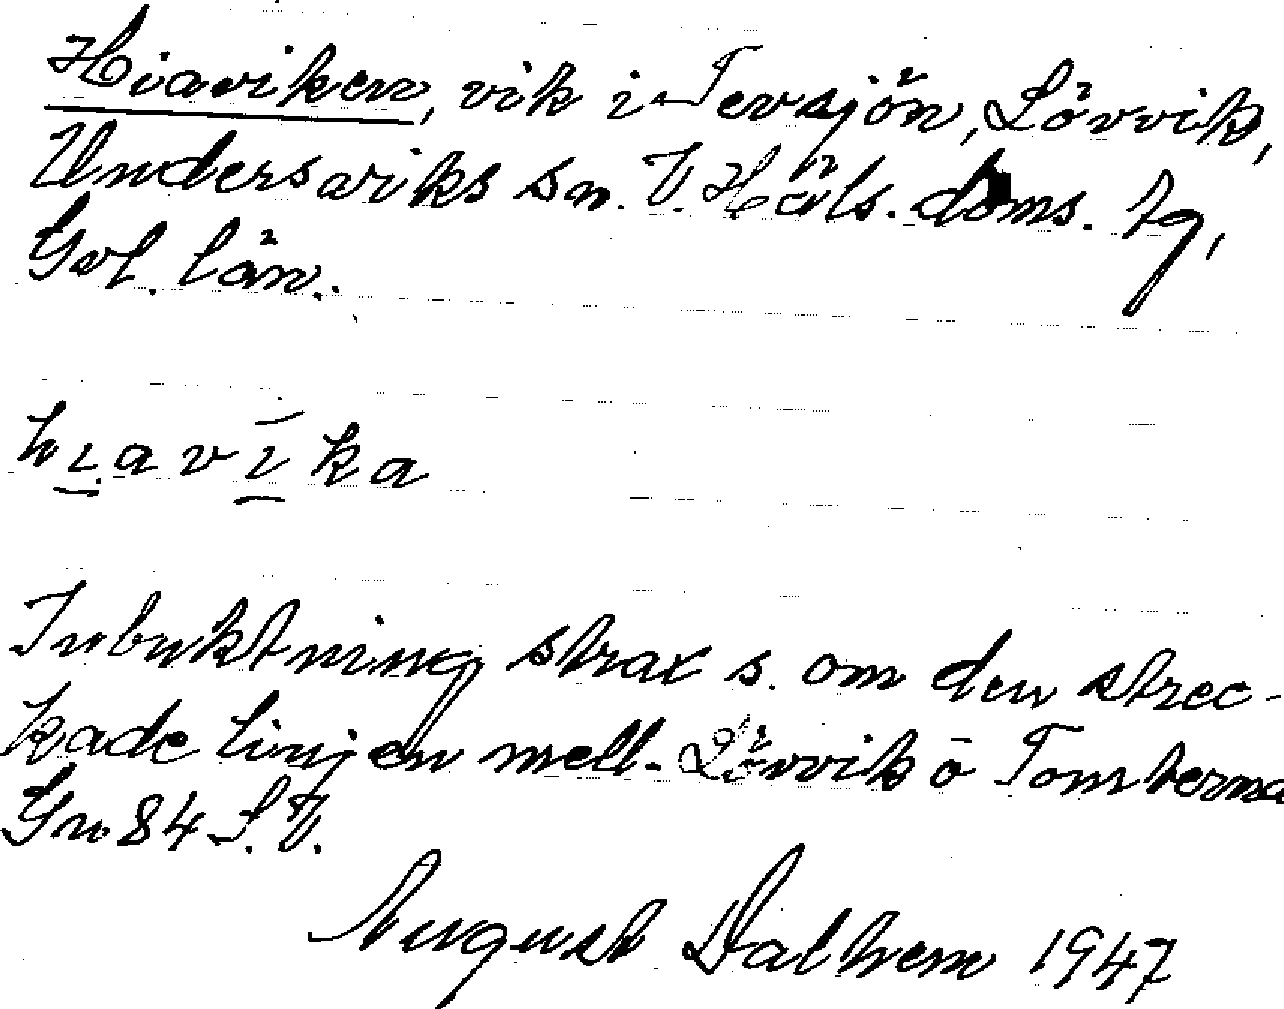 Hiaviken, vik i Tevsjön, Lövvik,
Undersviks sn. V. Häls. doms. tg,
Gvl. län.
hiavika
Inbuktning strax s. om den strec-
kade linjen mell. Lövvik o Tomterna
Gn 84 S.V.
August Dalhem 1947